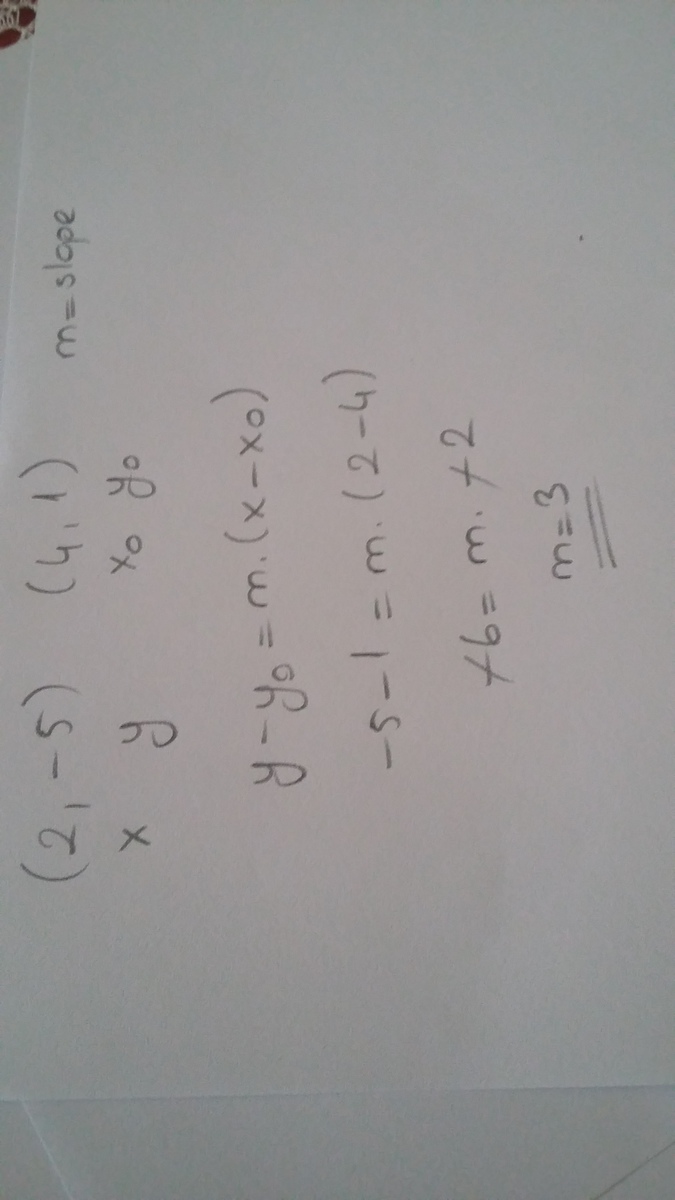 (2, -5) (4, 1) m = slope
x y x₀ y₀
y - y₀ = m.(x - x₀)
-5 - 1 = m.(2 - 4)
+6 = m. +2
m = 3